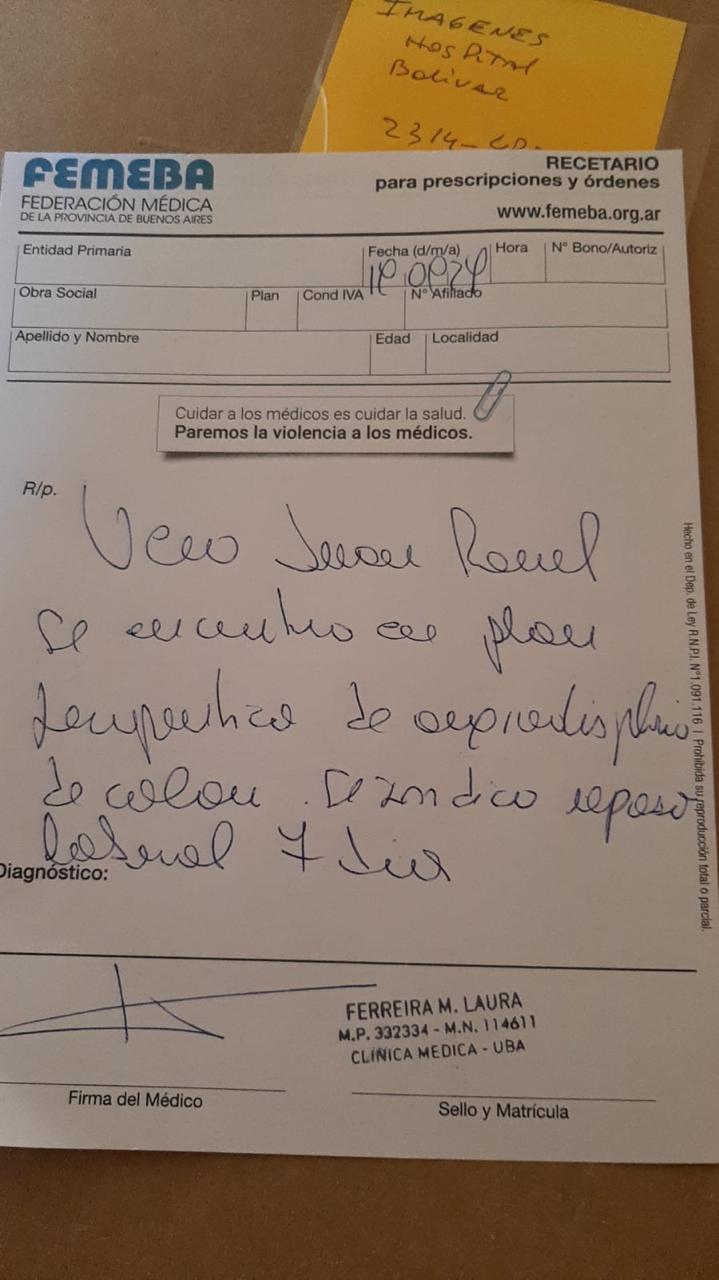 IMAGENES
HOSPITAL
BOLIVAR
2314-
FEMEBA
FEDERACIÓN MÉDICA
DE LA PROVINCIA DE BUENOS AIRES
RECETARIO
para prescripciones y órdenes
www.femeba.org.ar
Entidad Primaria
Fecha (d/m/a)
Hora
N° Bono/Autoriz
Obra Social
Plan
Cond IVA
N° Afiliado
Apellido y Nombre
Edad
Localidad
Cuidar a los médicos es cuidar la salud.
Paremos la violencia a los médicos.
R/p.
Juan
Se encuentra en plan
terapeutico de
de colon. Se indica reposo
laboral 7 dias
Diagnóstico:
Hecho en el Dep. de Ley R.N.P.I. N°1.091.116 | Prohibida su reproducción total o parcial.
FERREIRA M. LAURA
M.P. 332334 - M.N. 114611
CLINICA MEDICA - UBA
Firma del Médico
Sello y Matrícula